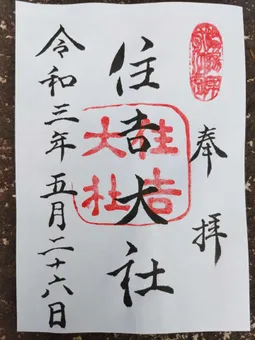 奉拝
住吉大社
住吉大社
令和三年五月二十六日